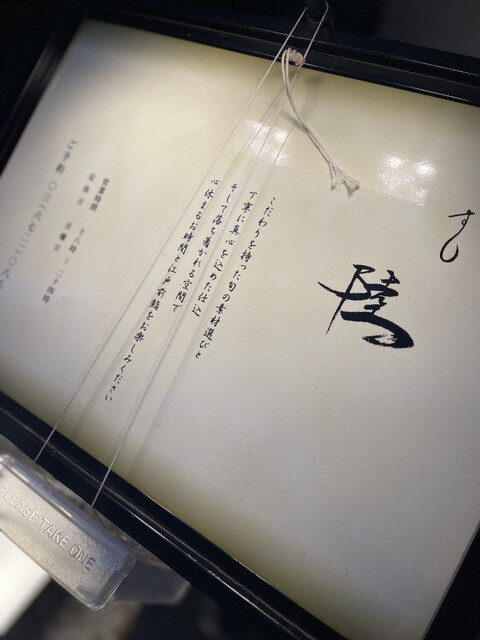 すし
こだわりを持った旬の素材選びと
丁寧に真心を込めた仕込
そして落ち着かれる空間で
心休まるお時間と江戸前鮨をお楽しみください
営業時間
十八時 〜 二十四時
定休日
ご予約
PLEASE TAKE ONE